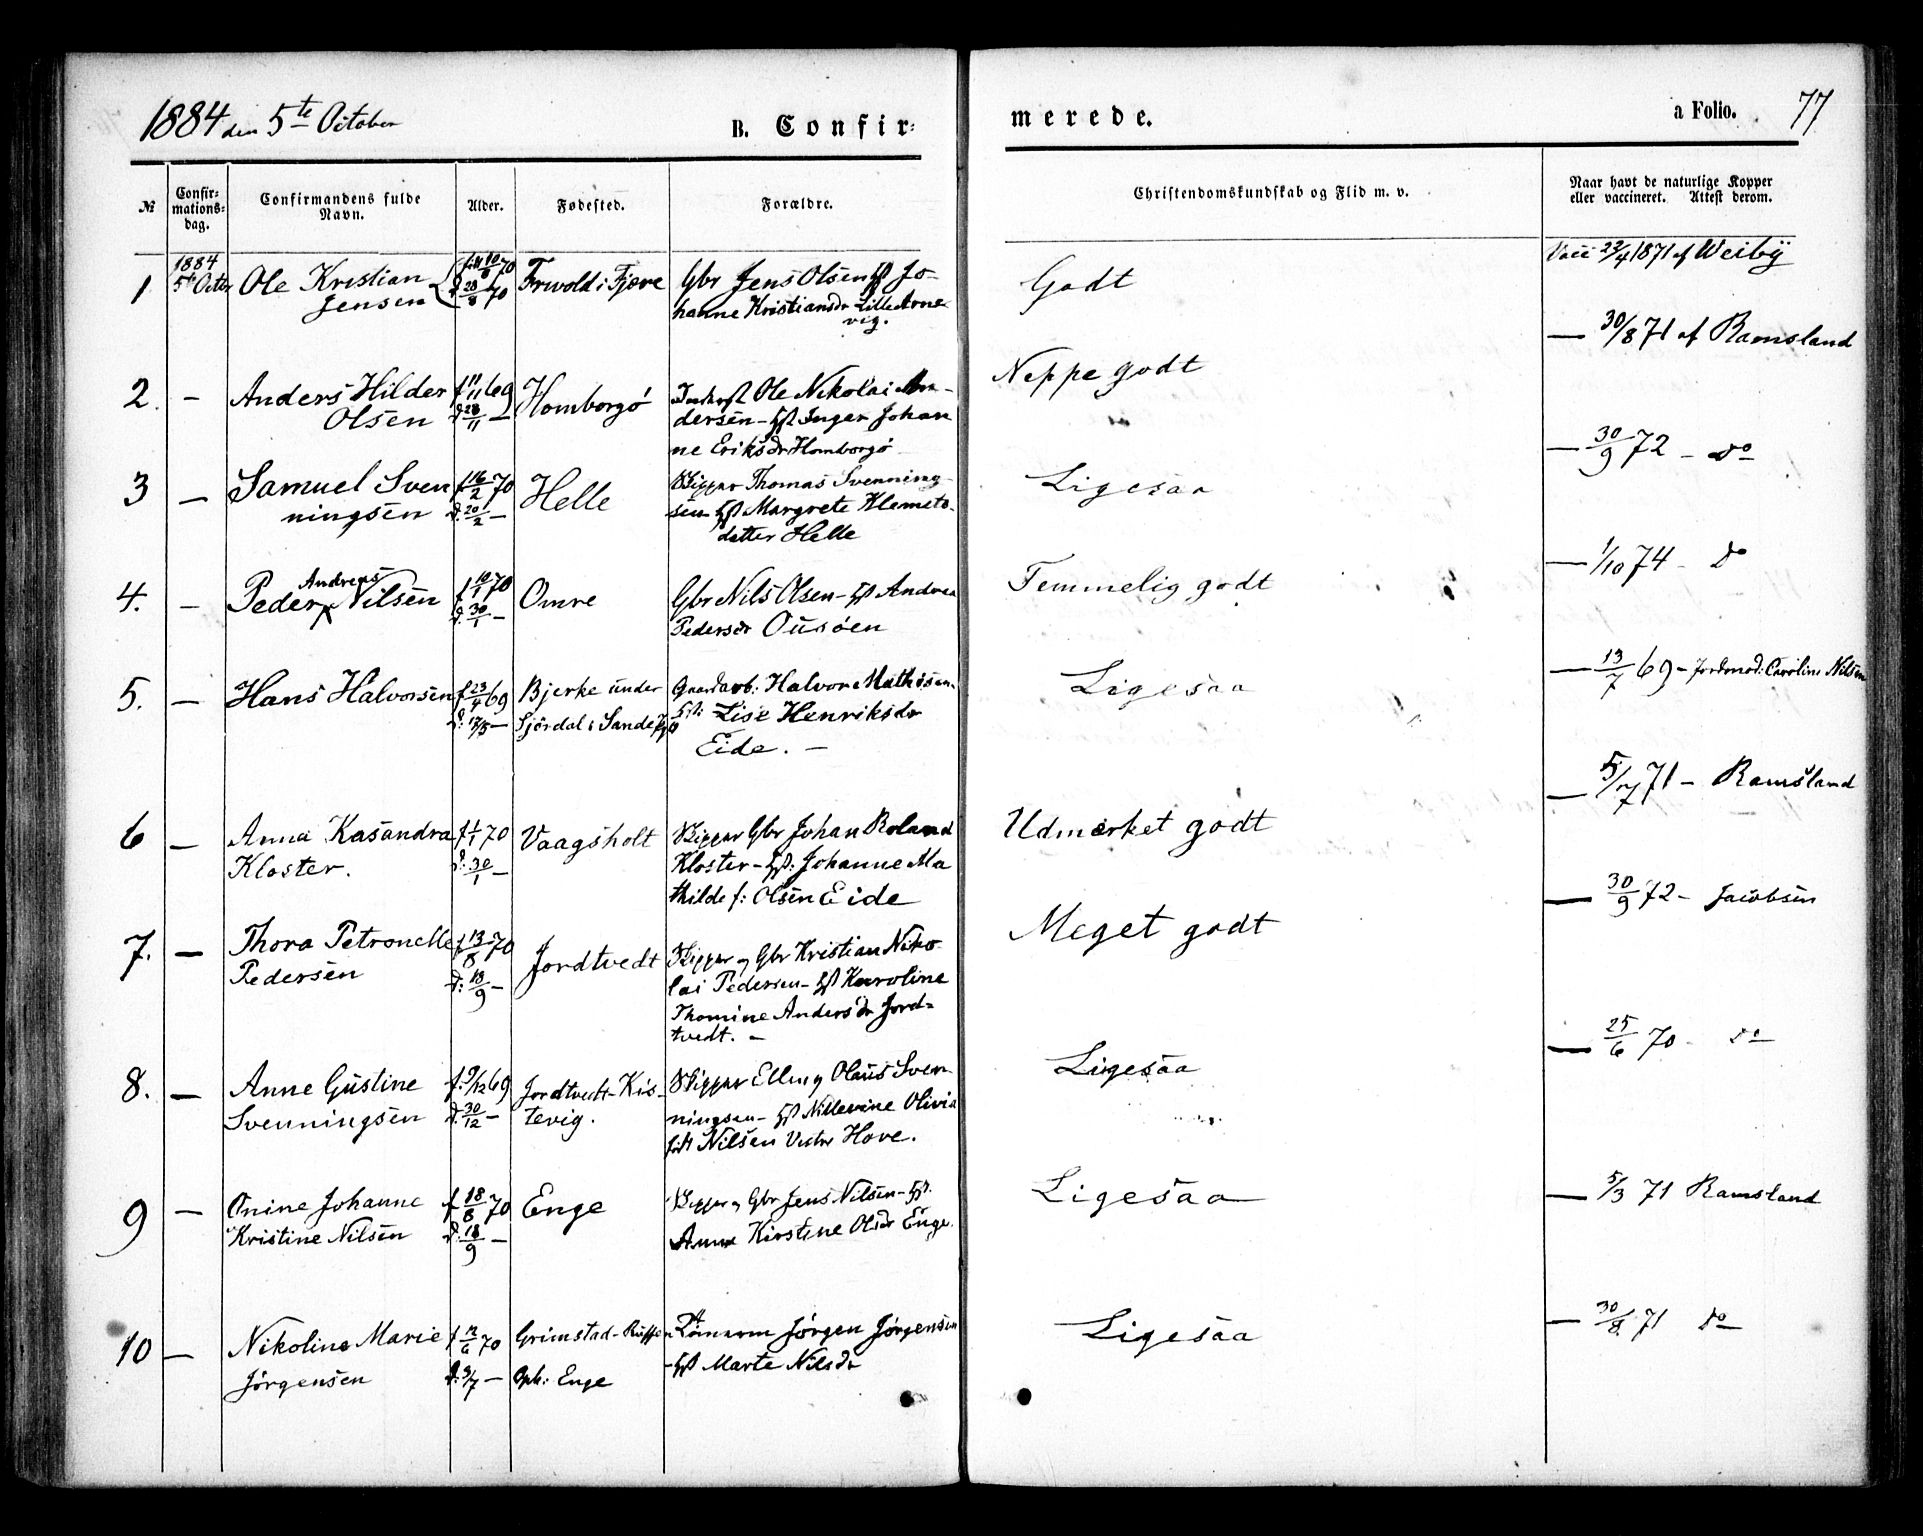 1884 den 5te October
B. Confir=
merede.
a Folio. 77
№
Confir=
mations=
dag.
Confirmandens fulde
Navn.
Alder.
Fødested.
Forældre.
Christendomskundskab og Flid m. v.
Naar havt de naturlige Kopper
eller vaccineret. Attest derom.
1 1884
5te Octbr Ole Kristian
Jensen
d: 28/8 70
i Fjære
Gbr Jens Olsen Hst Jo-
hanne Kristiansdr Lille Arne-
vig.
Godt
Vacc 22/4 1871 af Weiby
2. - Anders Hilder
Olsen
f 11/11 69
d: 28/11 -
Homborgö
Ole Nikolai An-
dersen - Hst Inger Johan
ne Eriksdr Homborgö
Neppe godt
- 30/8 71 af Ramsland
3 - Samuel Sven
ningsen
f 16/2 70
d: 20/2 -
Helle
Skipper Thomas Svenning-
sen Hst Margrete Klemets-
datter Helle
Ligesaa
- 30/9 72 - do
4. - Peder Andreas Nilsen
f 10/1 70
d: 30/1 -
Omre
Gbr Nils Olsen - Hst Andrea
Pedersdr Ousöen
Temmelig godt
- 1/10 74 - do
5. - Hans Halvorsen
f 23/4 69
d: 17/5 -
Bjerke under
Sjördal i Sande
Gaardarb: Halvor Mathisen.
Hst: Lise Henriksdr
Eide. -
Ligesaa
- 13/7 69 - Jordmod: Caroline Nilsen
6 - Anna Kasandra
Kloster.
f 1/1 70
d: 30/1 -
Vaagsholt
Skipper Gbr Johan Roland
Kloster - Hst: Johanne Ma
thilde f: Olsen Eide
Udmærket godt
- 5/7 71 - Ramsland
7. - Thora Petronelle
Pedersen
f 13/8 70
d: 18/9 -
Jordtvedt
Skipper og Gbr Kristian Niko
lai Pedersen - Hst Karoline
Thomine Andersdr Jord=
tvedt. -
Meget godt
- 30/9 72 - Jacobsen
8. - Anne Gustine
Svenningsen
f: 9/12 69
d: 30/12 -
Jordtvedt - Kis-
tevig.
Skipper Elling Olaus Sven
ningsen - Hst Nillevine Olivia
født Nilsen Vestre Hove.
Ligesaa
- 25/6 70 - do
9 - Onine Johanne
Kristine Nilsen
f 18/8 70
d: 18/9 -
Enge
Skipper og Gbr Jens Nilsen - Hst.
Anne Kirstine Olsdr Enge.
Ligesaa
- 5/3 71 Ramsland
10 - Nikoline Marie
Jörgensen
f 12/6 70
d: 3/7 -
Grimstad -
Oph: Enge
Jörgen Jörgensen
- Hst Marte Nilsdr
Ligesaa
- 30/8 71 do